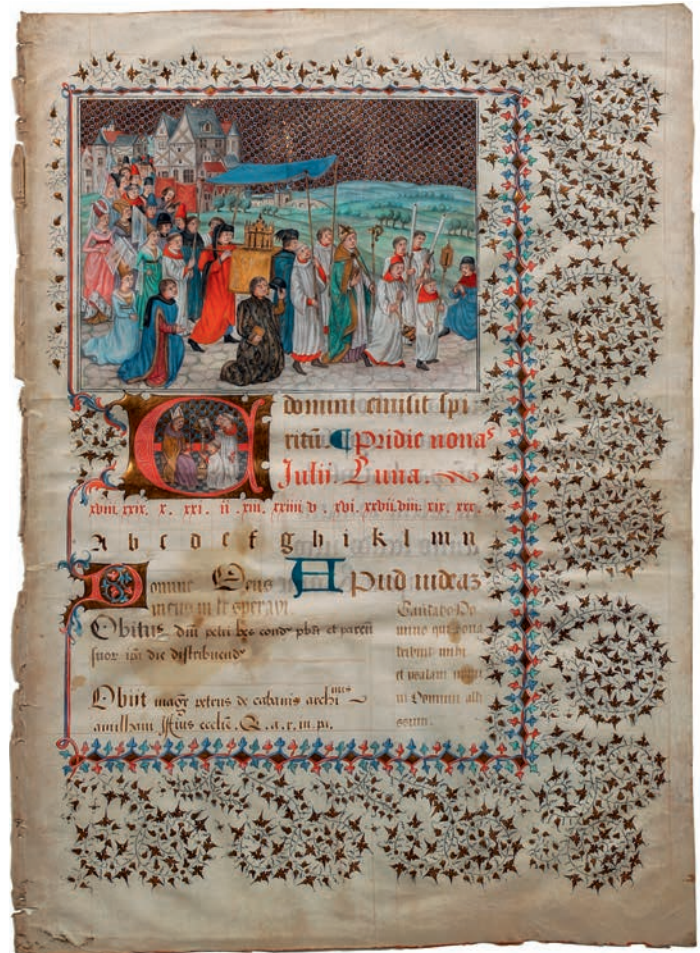 domini emisit spi
ritū. Pridie nonas
Julii. Luna.
xviii. xxix. x. xxi. ii. xiii. xxiiii v. xvi. xxvii. viii. xix. xxx.
A b c d e f g h i k l m n
Domine Deus
meus in te speravi.
Apud iudeas
Obitus dñi petri
suor ip̄a die distribuend
Obiit mag̃r petrus de cabanis archi
aurilhani ecclīe. Q. a. r. in pi.
Cantabo Do
mino qui bona
tribuit mihi
et psalam
Domini alti